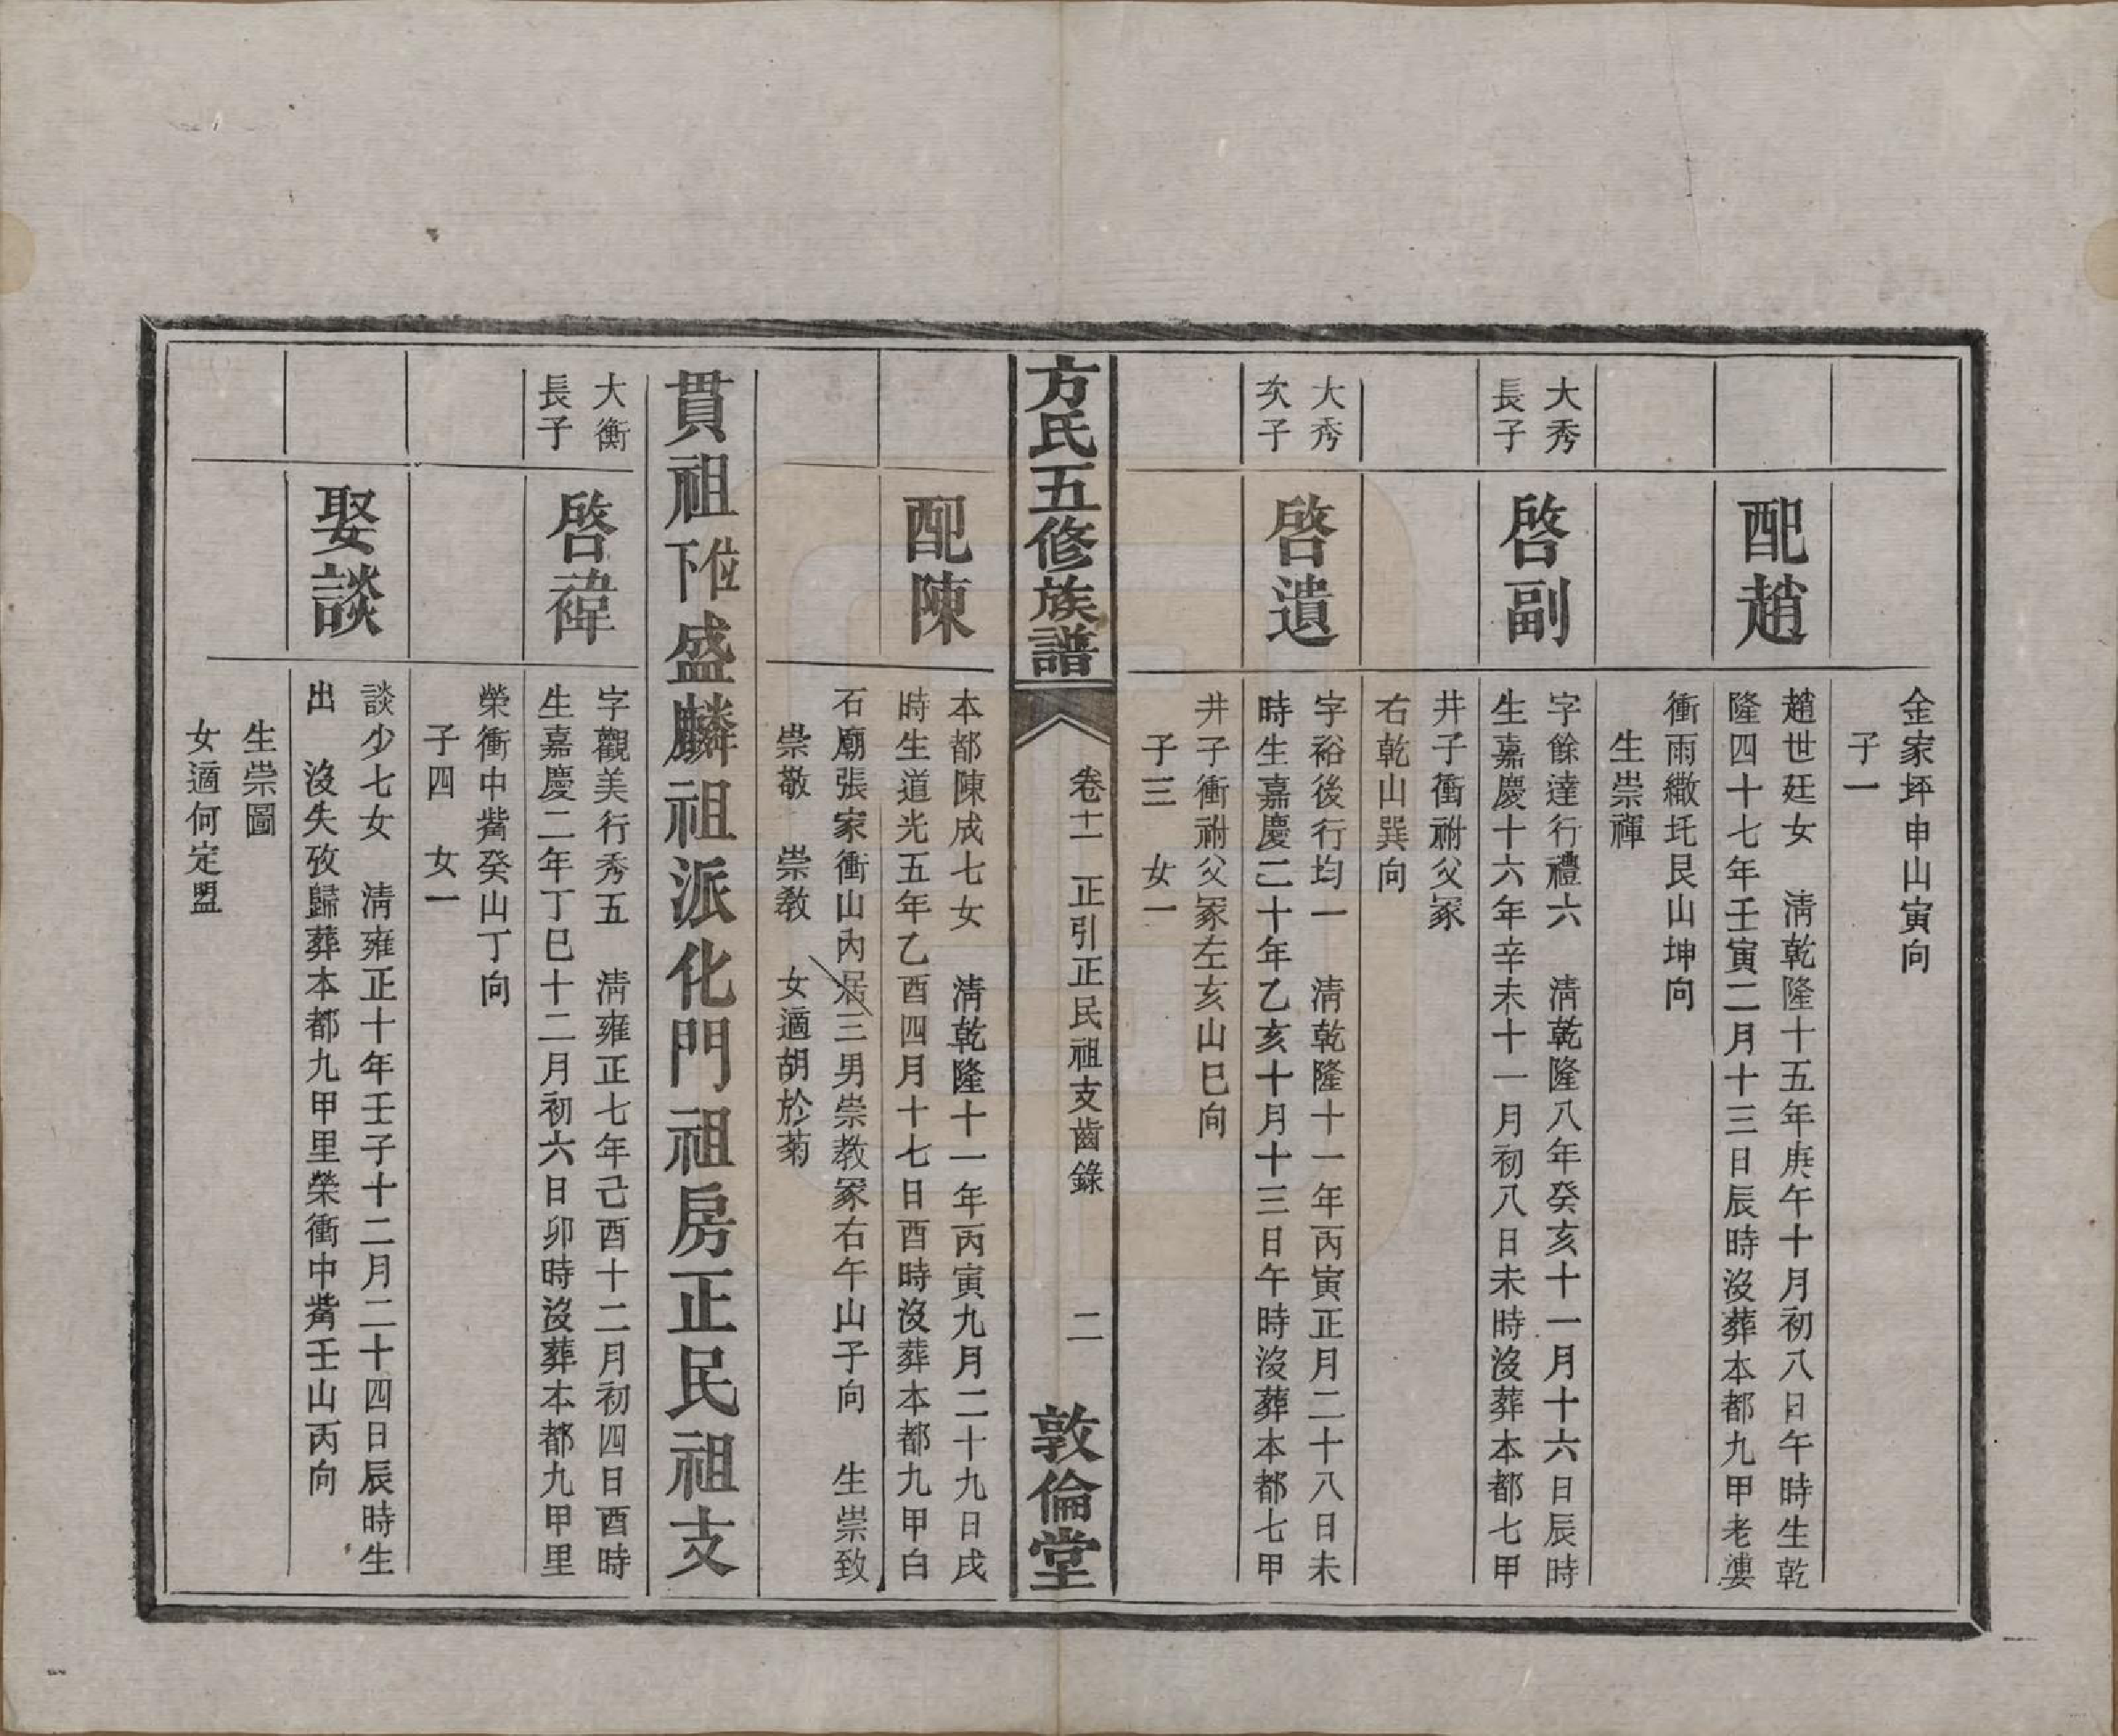 金家坪申山寅向
子一
配趙
趙世廷女　清乾隆十五年庚午十月初八日午時生乾
隆四十七年壬寅二月十三日辰時沒葬本都九甲老
衝雨繖托艮山坤向
生崇禪
大秀
長子
啓副
字餘達行禮六　清乾隆八年癸亥十一月十六日辰時
生嘉慶十六年辛未十一月初八日未時沒葬本都七甲
井子衝祔父冢
右乾山巽向
大秀
次子
啓遺
字裕後行均一　清乾隆十一年丙寅正月二十八日未
時生嘉慶二十年乙亥十月十三日午時沒葬本都七甲
井子衝祔父冢左亥山巳向
子三　女一
方氏五修族譜
卷十一　正引正民祖支齒錄　二
敦倫堂
配陳
本都陳成七女　清乾隆十一年丙寅九月二十九日戌
時生道光五年乙酉四月十七日酉時沒葬本都九甲白
石廟張家衝山內居三男崇教冢右午山子向　生崇致
崇敬　崇教　女適胡於菊
貫祖位下盛麟祖派化門祖房正民祖支
大衡
長子
啓禕
字觀美行秀五　清雍正七年己酉十二月初四日酉時
生嘉慶二年丁巳十二月初六日卯時沒葬本都九甲里
榮衝中嘴癸山丁向
子四　女一
娶談
談少七女　清雍正十年壬子十二月二十四日辰時生
出　沒失攷歸葬本都九甲里榮衝中嘴壬山丙向
生崇圖
女適何定盟